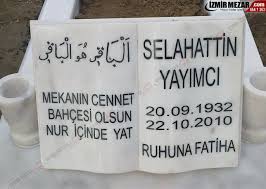 İZMİR MEZAR.com
الباقي هو الباقي
MEKANIN CENNET
BAHÇESİ OLSUN
NUR İÇİNDE YAT
SELAHATTİN
YAYIMCI
20.09.1932
22.10.2010
RUHUNA FATİHA